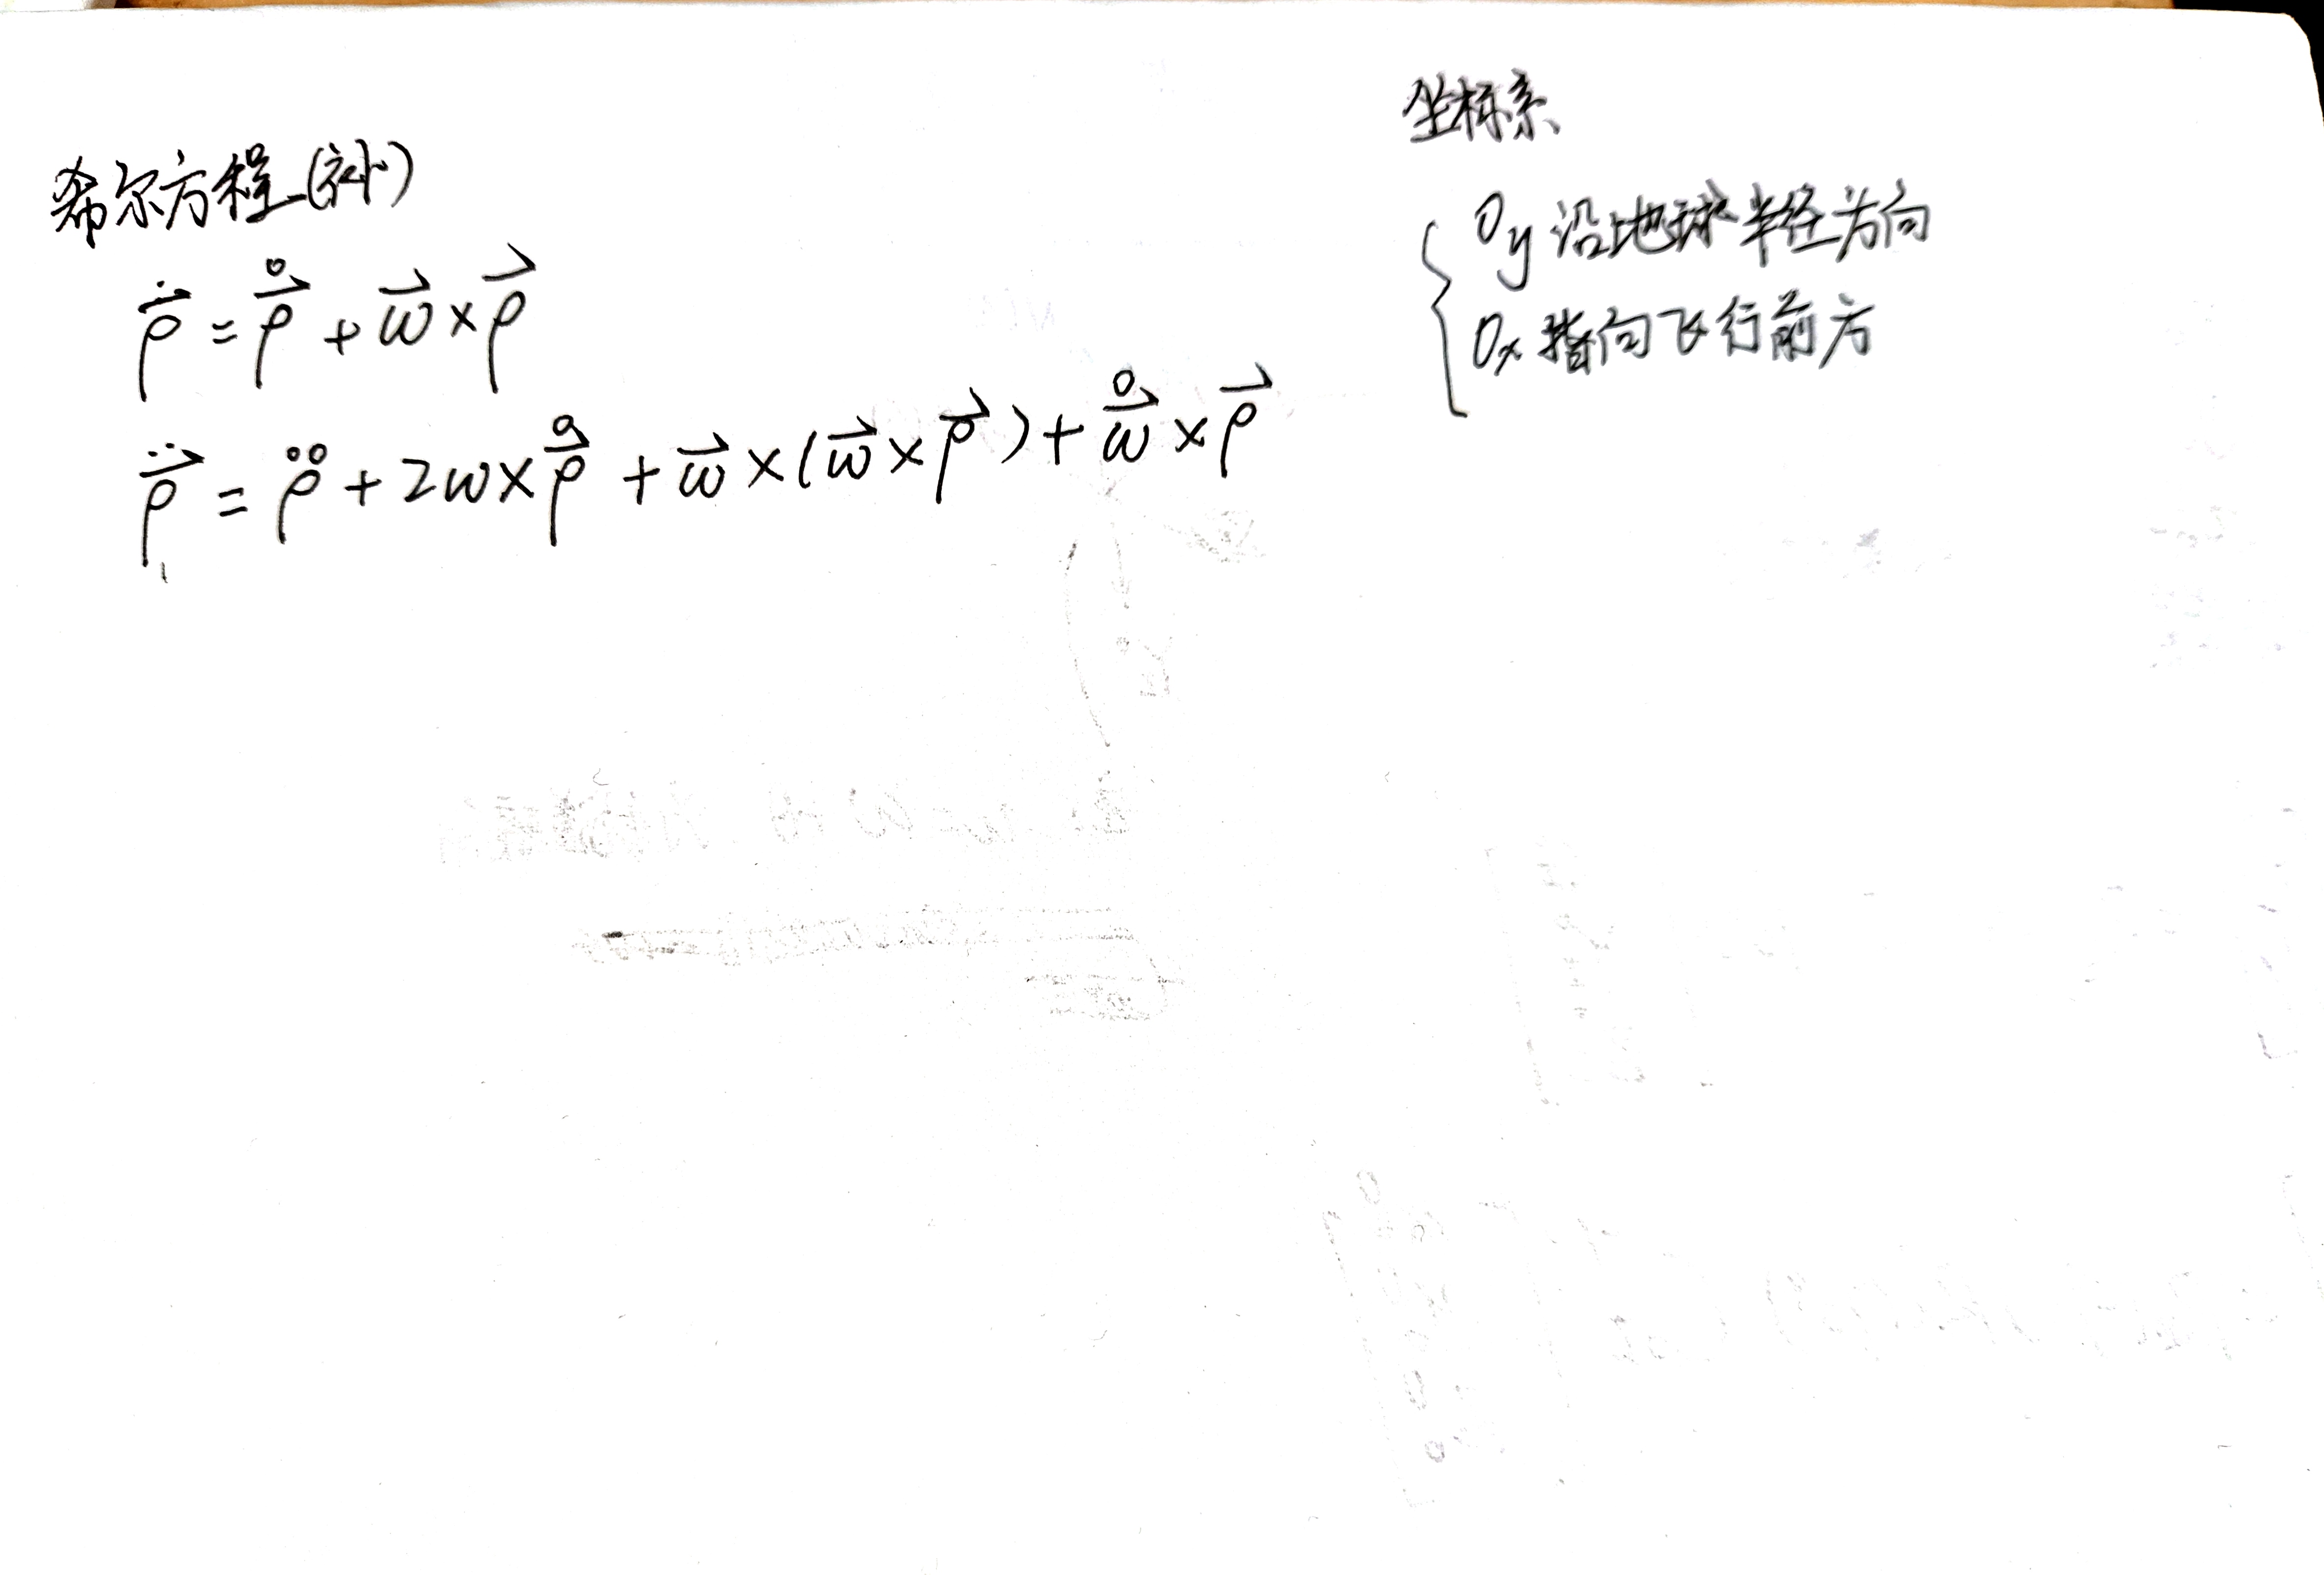 希尔方程(补)
\ddot{\vec{ρ}} = \overset{\circ}{\vec{ρ}} + \vec{ω} × \vec{ρ}
\ddot{\vec{ρ}} = \overset{\circ\circ}{ρ} + 2ω × \overset{\circ}{\vec{ρ}} + \vec{ω} × (\vec{ω} × \vec{ρ}) + \overset{\circ}{\vec{ω}} × \vec{ρ}
坐标系
Oy 沿地球半径方向
Ox 指向飞行前方